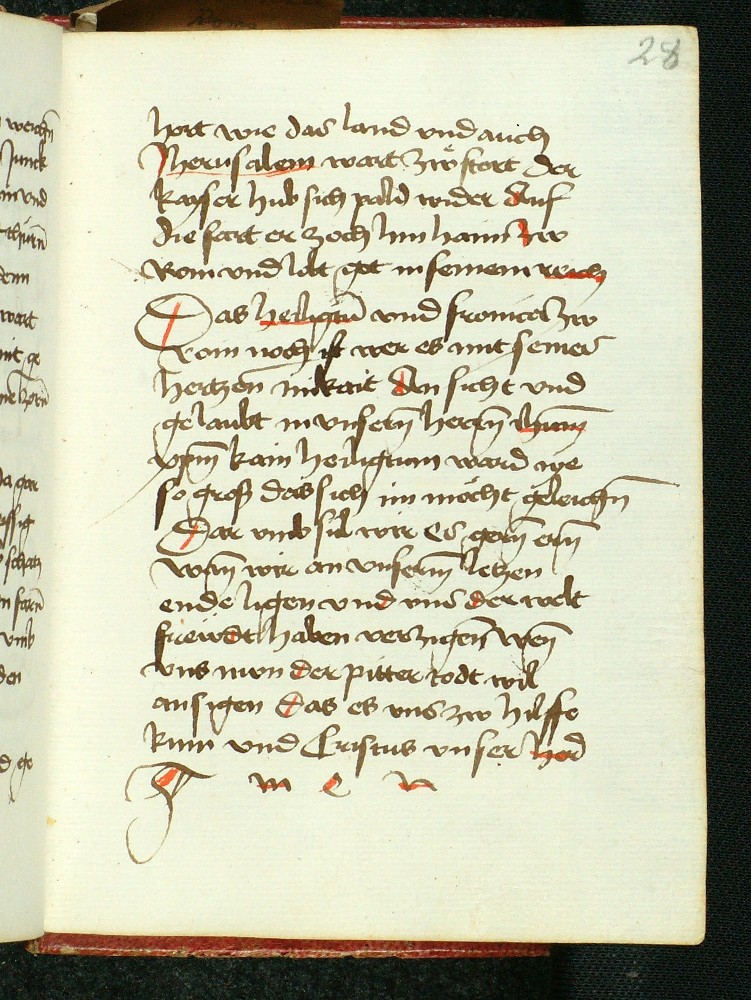 28
hort wie das land vnd auch
Jherusalem wart zwstort der
kayser hub sich pald wider Auf
die fart er zoch hin haim zw
Rom vnd lobt got in seinem reich
Das heiligtū vnd fronica zw
rom noch ist wer es mit seines
hertzen Inikait An sicht vnd
gelaubt in vnserñ herrñ ihm̄
xpm̄ kain heiligtum ward nye
so groß das sich im möcht geleichñ
Dar vmb sül wir Es gerñ erñ
wañ wir an vnserm̄ letzen
ende ligen vnd vns der welt
frewdt haben verzigeñ Weñ
vns nvn der pitter todt wil
ansigen Das es vns zw hilffe
kum vnd Cristus vnser herd
A m e n